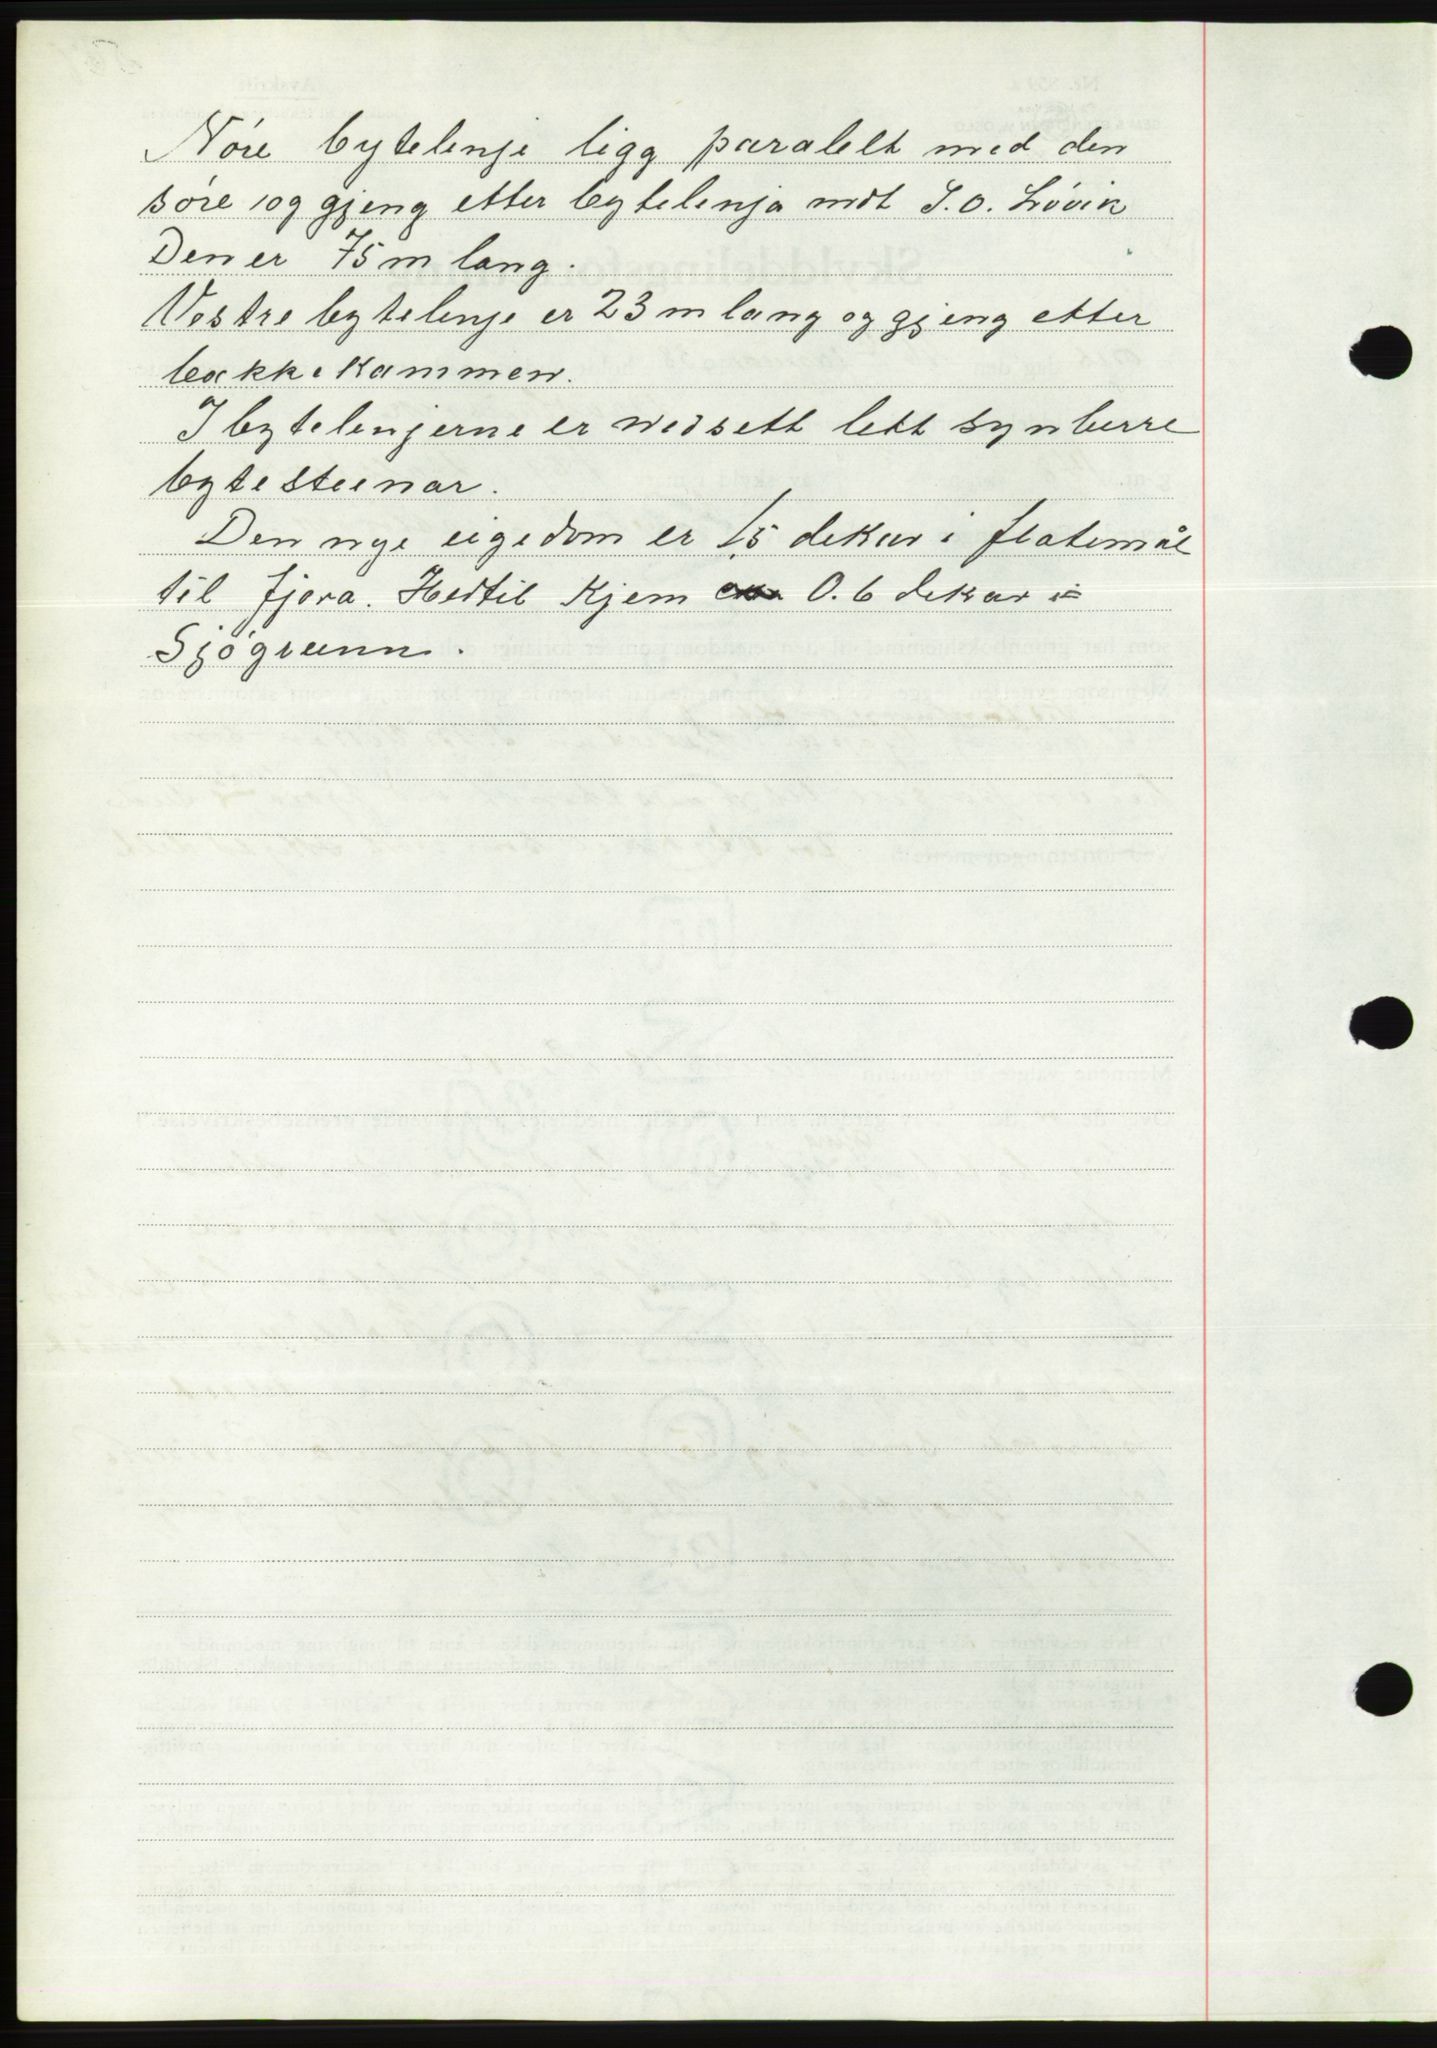 Nóre bytelenje ligg paralelt med den
sóre og gjeng etter bytelenja mot I. O. Lóvik
Den er 75 m lang.
Vestre bytelenje er 23 m lang og gjeng etter
bakkekammen.
I bytelenjerne er nedsett lett synberre
bytesteinar.
Den nye eigedom er 1,5 dekar i flatemål
til fjora. Hertil kjem 0.6 dekar i
Sjógrunn.